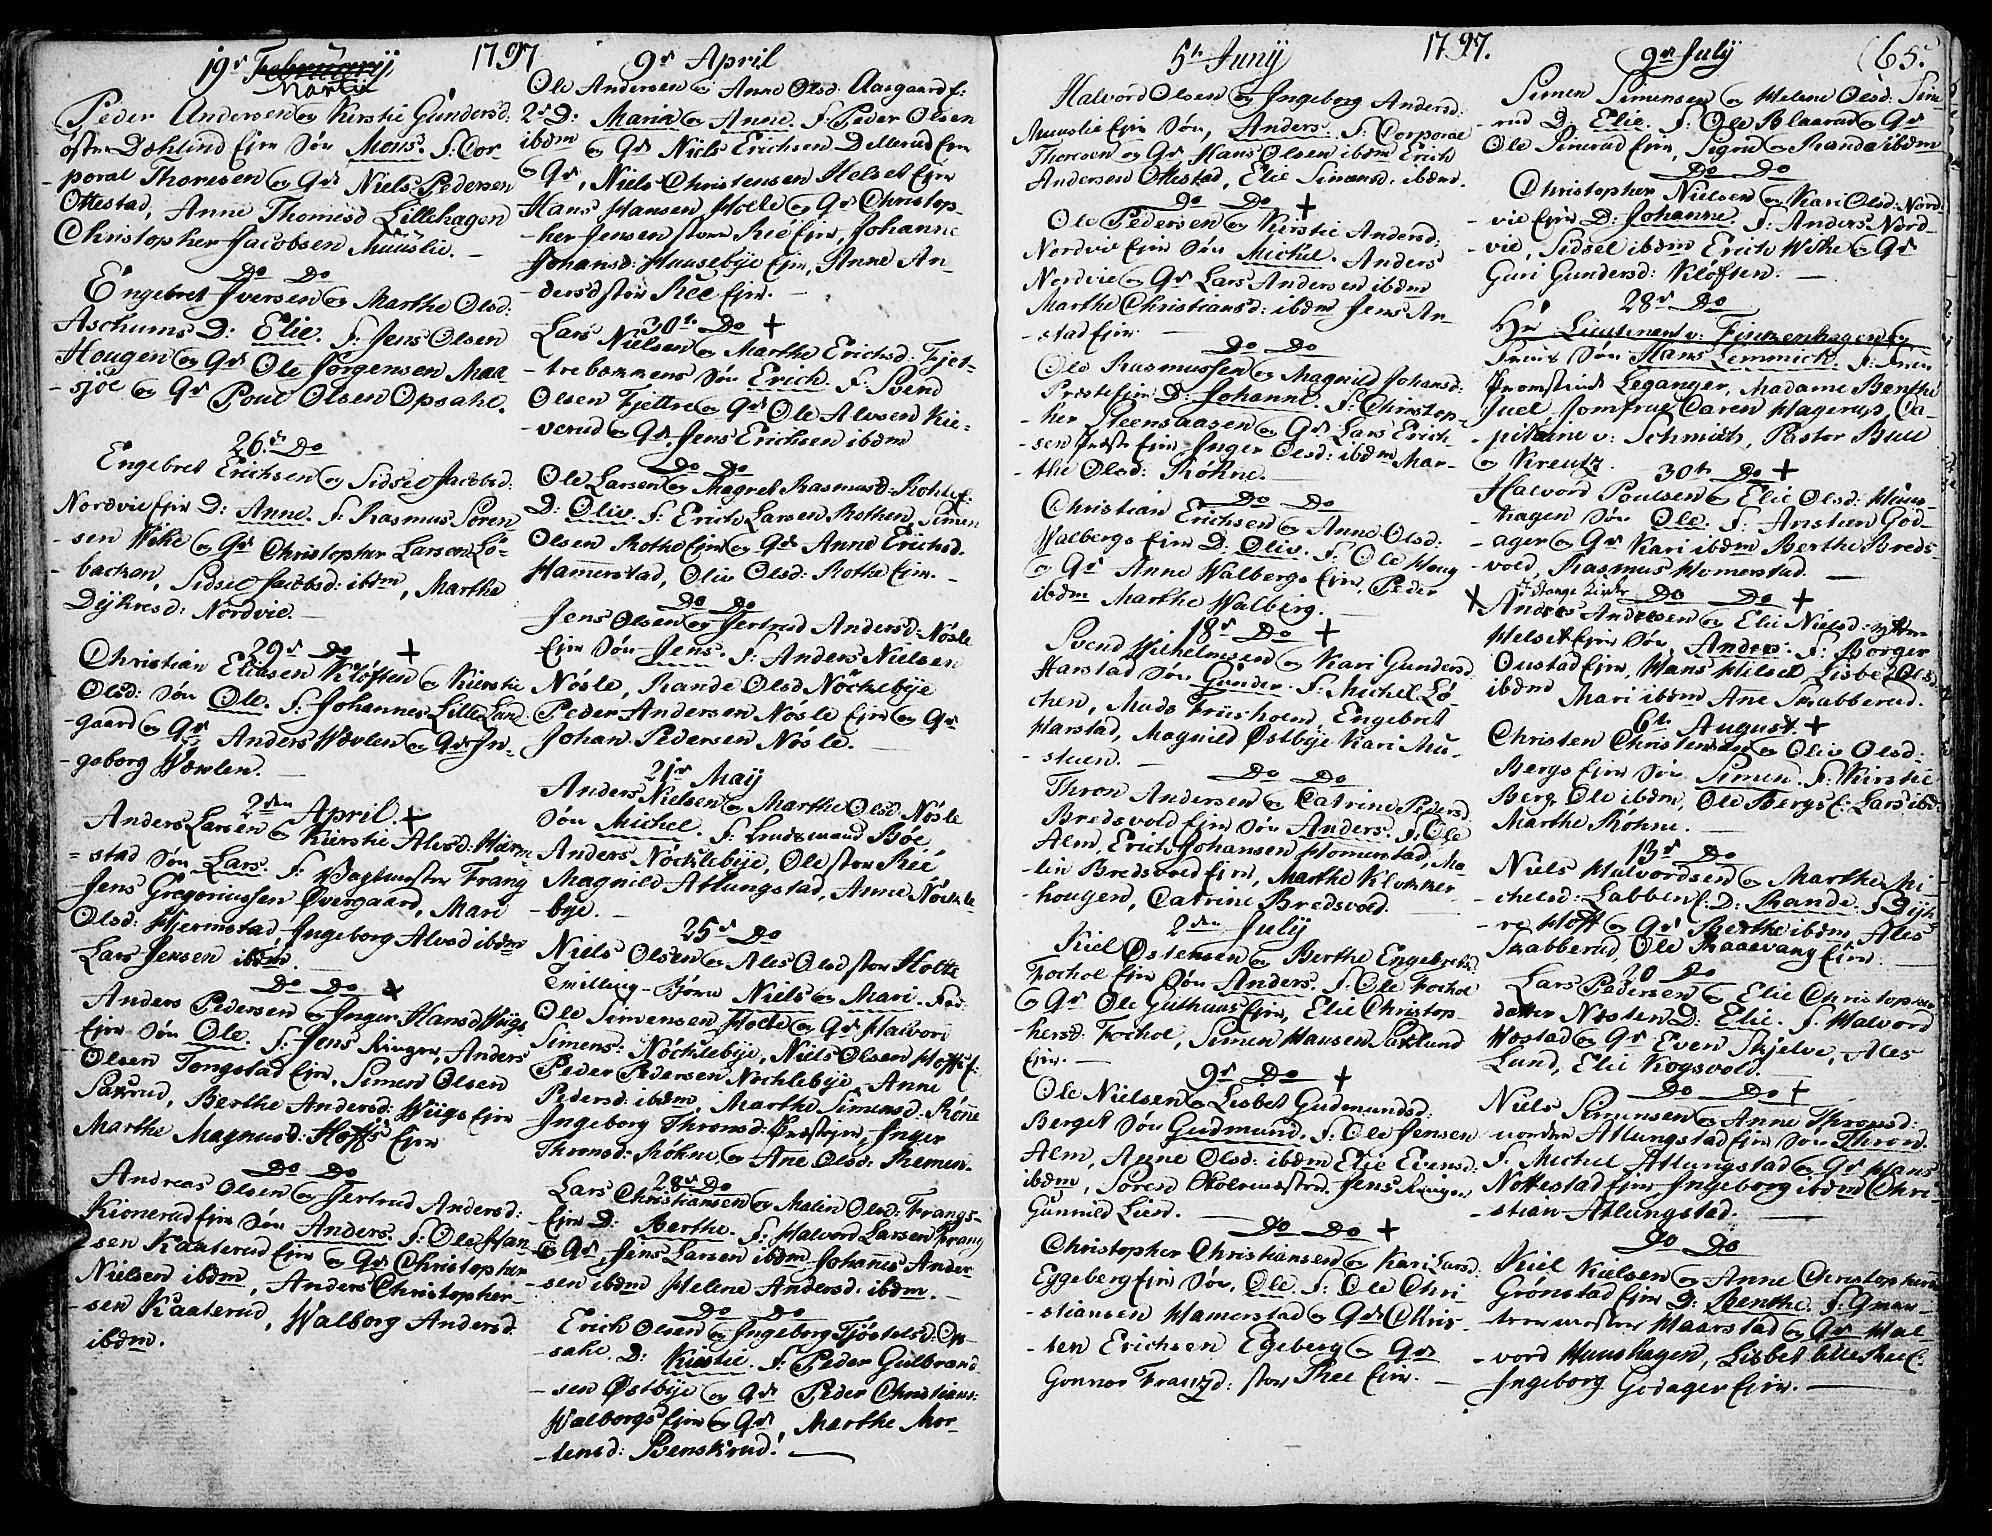 1797
19de Februarij
Martii
Peder Andersen og Kirstie Gundersd:
østre Dæhlind Ejer Søn Mons. F: Cor-
-poral Thoresen og Qv: Niels Pedersen
Ottestad, Anne Thomesd Lillehagen
Christopher Jacobsen Muuslie.
Do Do
Engebret Iversen og Marthe Olsd:
Aschums D: Elie. F: Jens Olsen
Hougen og Qv Ole Jørgensen Maa-
-sjøe og Qv Poul Olsen Opsahl.
26de Do
Engebret Erichsen og Sidsel Jacobsd:
Nordvie Ejer D: Anne. F: Rasmus Søren
-sen Wike og Qv Christopher Larsen Lø-
-backen, Sidsel Jacobsd: ibdm, Marthe
Dijkresd: Nordvie.
29de Do +
Christian Eliasen Kløften og Kierstie
Olsd: Søn Ole. F: Johannes Lille Lund
-gaard og Qv Anders Wovlen og Qv In-
-geborg Wovlen.
2den April. +
Anders Larsen og Kierstie Alvsd: Hierm-
-stad Søn Lars. F: Wagtmester Frang
Jens Gregoriussen Øvergaard, Mari
Olsd: Hjermstad Ingeborg Alvsd ibdm
Lars Jensen ibdm.
Do Do +
Anders Pedersen og Inger Hansd Wiigs
Ejer Søn Ole. F: Jens Ringer, Anders
Olsen Tongstad Ejer, Simen Olsen
Saxrud, Berthe Andersd: Wiigs Ejer
Marthe Magnusd: Hoffs Ejer
Do Do
Andreas Olsen og Jertrud Andersd:
Kionerud Ejer Søn Anders. F: Ole Han
-sen Kaaterud Ejer og Qv Christopher
Nielsen ibdm, Anders Christopher-
-sen Kaaterud, Walborg Andersd.
ibdm.
9de April
Ole Andersen og Anne Olsd: Aasgaard E:
2de D: Maria og Anne. F: Peder Olsen
ibdm og Qv Niels Erichsen Dellerud Ejer
og Qv, Niels Christensen Helset Ejer
Hans Hansen Holle og Qv Christop-
-her Jensen store Ree Ejer, Johanne
Johansd: Huusebye Ejer, Anne An-
-dersd store Ree Ejer.
30te Do +
Lars Nielsen og Marthe Erichsd: Fjet-
-trebakkens Søn Erich. F: Svend
Olsen Fjettre og Qv Ole Alvsen Kie-
-verud og Qv, Jens Erichsen ibdm
Do Do
Ole Larsen og Magret Rasmusd: Rothe E:
D: Oliv. F: Erich Larsen Rothen, Simen
Olsen Rothe Ejer og Qv Anne Erichsd.
Hamerstad, Oliv Olsd: Rothe Ejer.
Do Do
Jens Olsen og Jertrud Andersd: Nøsle
Ejer Søn Jens. F: Anders Nielsen
Nøsle, Rande Olsd Nøcklebye
Peder Andersen Nøsle Ejer og Qv
Johan Pedersen Nøsle.
21de May
Anders Nielsen og Marthe Olsd Nøsle
Søn Michel. F: Lendsmand Bøe,
Anders Nøcklebye, Ole store Ree
Magnild Atlungstad, Anne Nøckle-
-bye.
25de Do
Niels Olsen og Ales Olsd store Holte
Tvilling-Børn Niels og Mari. Fad:
Ole Simensen Holte og Qv Halvor
Simens: Nøcklebye, Niels Olsen Hoff E:
Peder Pedersen Nøcklebye, Anne
Pedersd: ibdm, Marthe Simensd: Røne
Ingeborg Thronsd: Præstejer, Inger
Thronsd: Røhne, og Ane Olsd: Remen.
28de Do
Lars Christiansen og Malin Olsd: Frangs-
-Ejer D: Berthe. F: Halvord Larsen Frang
og Qv, Jens Larsen ibdm Johanes Ander
-sen ibdm Helene Andersd: ibdm.
Do Do
Erich Olsen og Ingeborg Fjøstelsd: Op-
-sahl. D: Kirstie. F: Peder Gulbrand
-sen Østbye og Qv Peder Christians:
Walborgs Ejer og Qv, Marthe Mor-
-tensd: Benskrud.
1797.
65.
5te Juny
Halvord Olsen og Ingeborg Andersd:
Muuslie Ejer Søn, Anders. F: Corporal
Thoresen og Qv Hans Olsen ibdm Erich
Andersen Ottestad, Elie Simensd: ibdm.
Do Do +
Ole Pedersen og Kirstie Andersd:
Nordvie Ejer Søn Michel. Anders
Nordvie og Qv Lars Andersen ibdm
Marthe Christiansd: ibdm Jens An-
-stad Ejer.
Do Do
Ole Rasmussen og Magnild Johansd:
Præste Ejer D: Johanne. F: Christop-
-her Steensaasen og Qv Lars Erich
-sen Præste Ejer Inger Olsd: ibdm Mar-
-the Olsd: Røhne.
Do Do
Christian Erichsen og Anne Olsd:
Walbergs Ejer D: Oliv. F: Ole Houg
og Qv Anne Walbergs Ejer, Peder
ibdm Marthe Walberg.
18de Do +
Svend Wilhelmsen og Kari Gundersd
Harstad Søn Gunder. F: Michel Lø-
chen, Mads Friisholm, Engebret
Harstad, Magnild Østbye Kari Mu-
-stuen.
Do Do
Thron Andersen og Catrine Pedersd
Bredsvold Ejer Søn Anders. F: Ole
Alm, Erich Johansen Homerstad, Ma-
-lin Bredsvold Ejer, Marthe Klokker
-hougen, Catrine Bredsvold.
2den July
Kiel Østensen og Berthe Engebretsd
Fochol Ejer Søn Anders. F: Ole Fochol
og Qv Ole Guthuus Ejer, Elie Christop-
-hersd: Fochol, Simen Hansen Saxlund
Ejer.
9de Do +
Ole Nielsen og Lisbet Gudmundsd:
Berget Søn Gudmund. F: Ole Jensen
Alm, Anne Olsd: ibdm Elie Evensd:
ibdm, Søren Holmestrd. Jens Ringer
Gunnild Lien.
Do Do +
Christopher Christiansen og Kari Larsd:
Eggeberg Ejer Søn, Ole. F: Ole Chri-
-stiansen Hamerstad og Qv Chris-
-ten Erichsen Egeberg og Qv
Gonnor Franzd: store Ree Ejer.
9de July
Simen Simensen og Helene Olsd: Sine
-rud D: Elie. F: Ole Blaarud og Qv
Ole Sinerud Ejer, Sigrid og Randa ibdm
Do Do
Christopher Nielsen og Kari Olsd: Nord
-vie Ejer D: Johanne. F: Anders Nord-
-vie, Sidsel ibdm Erich Wike og Qv
Guri Gundersd: Kløften.
28de Do
Hr Lieutenent v: Finkenhagen og
Frues Søn Hans Lemmich. F: Frue
Promstinde Leganger, Madame Berthe
Juel Jomfrue Caren Hagerup, Ca-
-pitaine v: Schmidt, Pastor Bull
og Kreutz.
30te Do +
Halvord Poulsen og Elie Olsd: Huus-
-hagen Søn Ole. F: Arsteen God-
-ager og Qv Kari ibdm Berthe Breds
-vold, Rasmus Homerstad.
i Stange Kirke Do Do +
+ Andres Andersen og Elie Nielsd: yttre
Helset Ejer Søn, Andres. F: Borger
Oustad Ejer, Hans Helset Lisbet Olsd
ibdm Mari ibdm Ane Skabberud.
6te August. +
Christen Christensen og Oliv Olsd:
Bergs Ejer Søn Simen. F: Kirstie
Berg, Ole ibdm, Ole Bergs E: Lars ibd:
Marthe Røhne.
13de Do
Niels Halvordsen og Marthe Mi-
-chelsd: Labben E: D: Rande. F: Dijk
-re Hoff og Qv Berthe ibdm Ales
Skabberud, Ole Kraaevang Ejer.
20 Do
Lars Pedersen og Elie Christopher
datter Nøsten D: Elie. F: Halvord
Hostad og Qv Even Skjelve, Ales
Lund, Elie Kogsvold.
Do Do +
Niels Simensen og Anne Thronsd:
nordre Atlungstad Ejer Søn Thrond.
F: Michel Atlungstad og Qv Hans
Nøttestad Ejer, Ingeborg ibdm Chri-
-stian Atlungstad.
Do Do
Kiel Kielsen og Anne Christophersd
Grønstad Ejer D: Berthe. F: Qvar-
teermester Haarstad og Qv Hal
-vord Huushagen, Lisbet lille Ree E:
Ingeborg Godager Ejer.